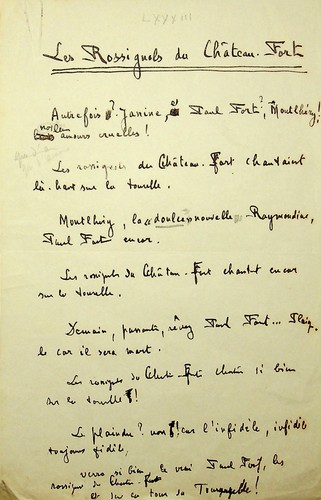 LXXXIII
Les Rossignols du Château-Fort
Autrefois ? Janine, ô Paul Fort ?, Montlhéry !
nos amours cruelles !
Les rossignols du Château-Fort chantaient
là-haut sur la tourelle.
Montlhéry, la « douce » nouvelle Raymondine,
Paul Fort encor.
Les rossignols du Château-Fort chantent encor
sur la tourelle.
Demain, passants, rêvez Paul Fort...
le car il sera mort.
Les rossignols du Château-Fort chantent si bien
sur la tourelle !
Le plaindre ? non ! car l'infidèle, infidèle
toujours fidèle,
verra si bien, le vrai Paul Fort, les
rossignols du Château-Fort
et sa tour